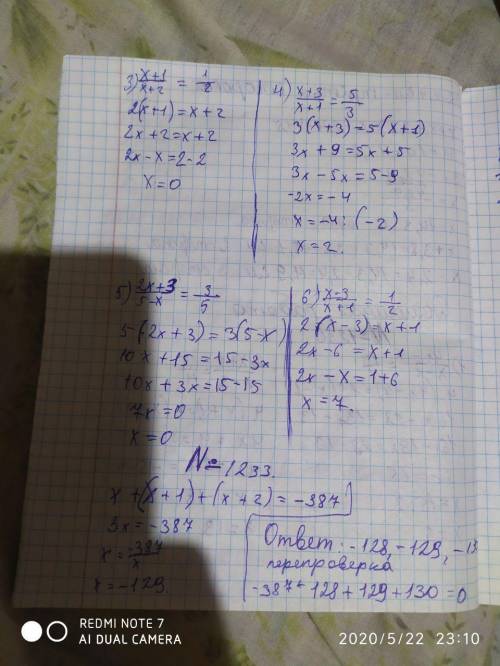 3) x+1/x+2 = 1/2
2(x+1)=x+2
2x+2=x+2
2x-x=2-2
x=0
4) x+3/x+1 = 5/3
3(x+3)=5(x+1)
3x+9=5x+5
3x-5x=5-9
-2x=-4
x=-4:(-2)
x=2.
5) 2x+3/5-x = 3/5
5(2x+3)=3(5-x)
10x+15=15-3x
10x+3x=15-15
7x=0
x=0
6) x-3/x+1 = 1/2
2(x-3)=x+1
2x-6=x+1
2x-x=1+6
x=7.
№1233.
x+(x+1)+(x+2)=-387
3x=-387
x=-387/x
x=-129.
Ответ: -128, -129, -13
перепроверка
-387+128+129+130=0
REDMI NOTE 7
AI DUAL CAMERA
2020/5/22 23:10